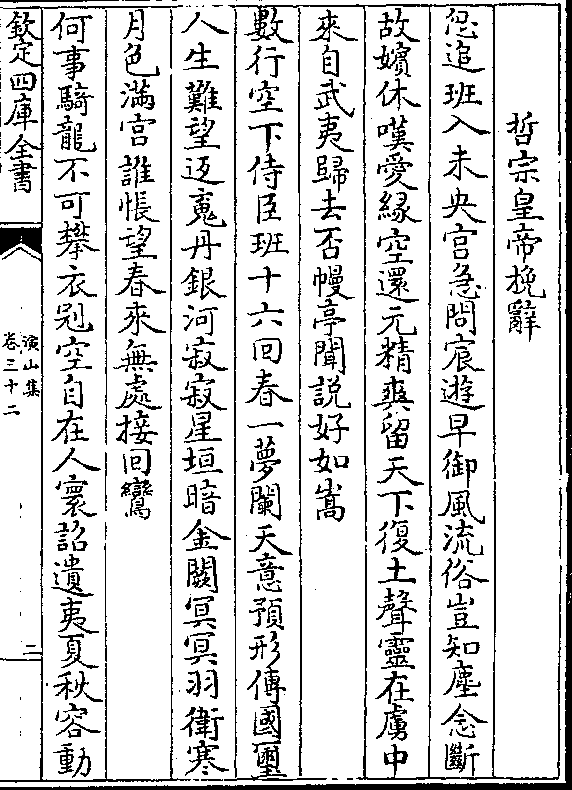 故嬪休嘆愛緣空還元精爽留天下復土聲靈在虜中
來自武夷歸去否幔亭聞說好如嵩
哲宗皇帝挽辭
數行空下侍臣班十六回春一夢闌天意預形傳國璽
人生難望返魂丹銀河寂寂星垣暗金闕冥冥羽衛寒
月色滿宮誰悵望春來無處接回鸞
何事騎龍不可攀衣剔空自在人寰詔遺夷夏秋容動
欽定四庫全書
演山集
卷三十二
二